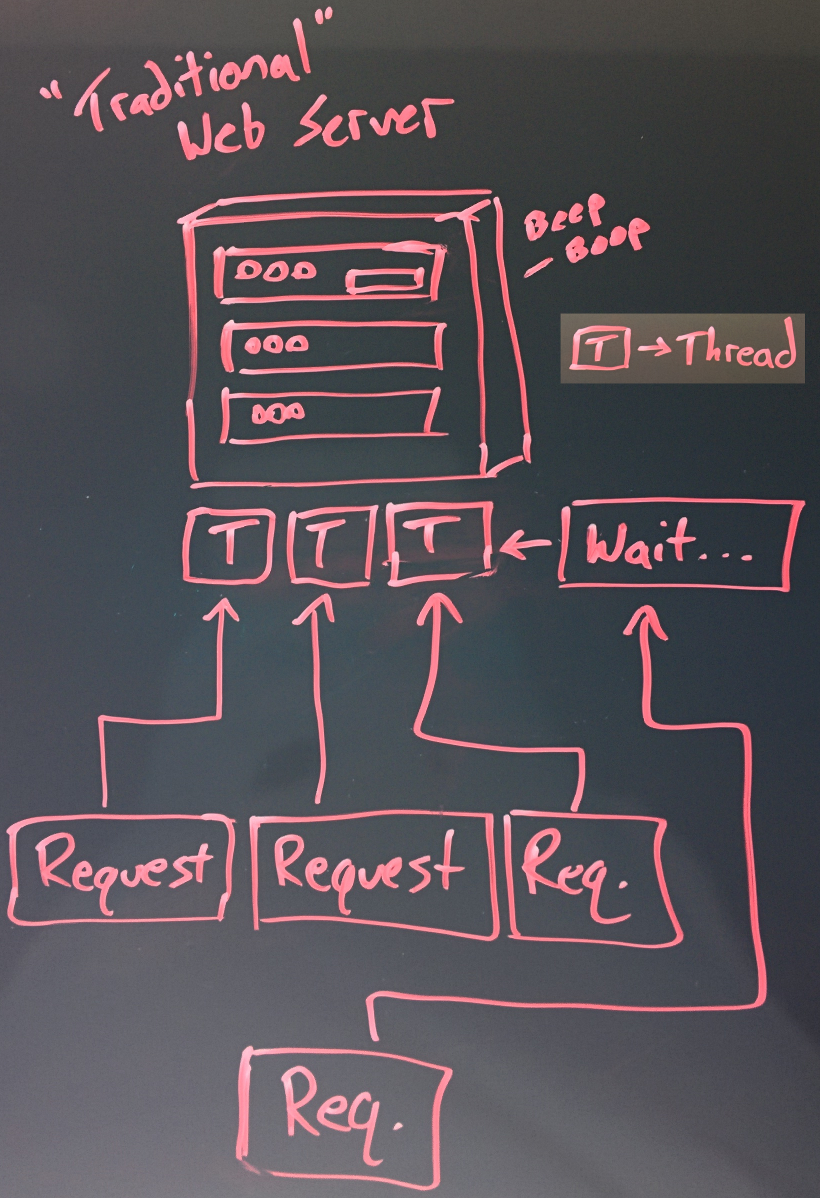 "Traditional"
Web Server
Beep
- Boop
T → Thread
T T T ← Wait...
Request Request Req.
Req.